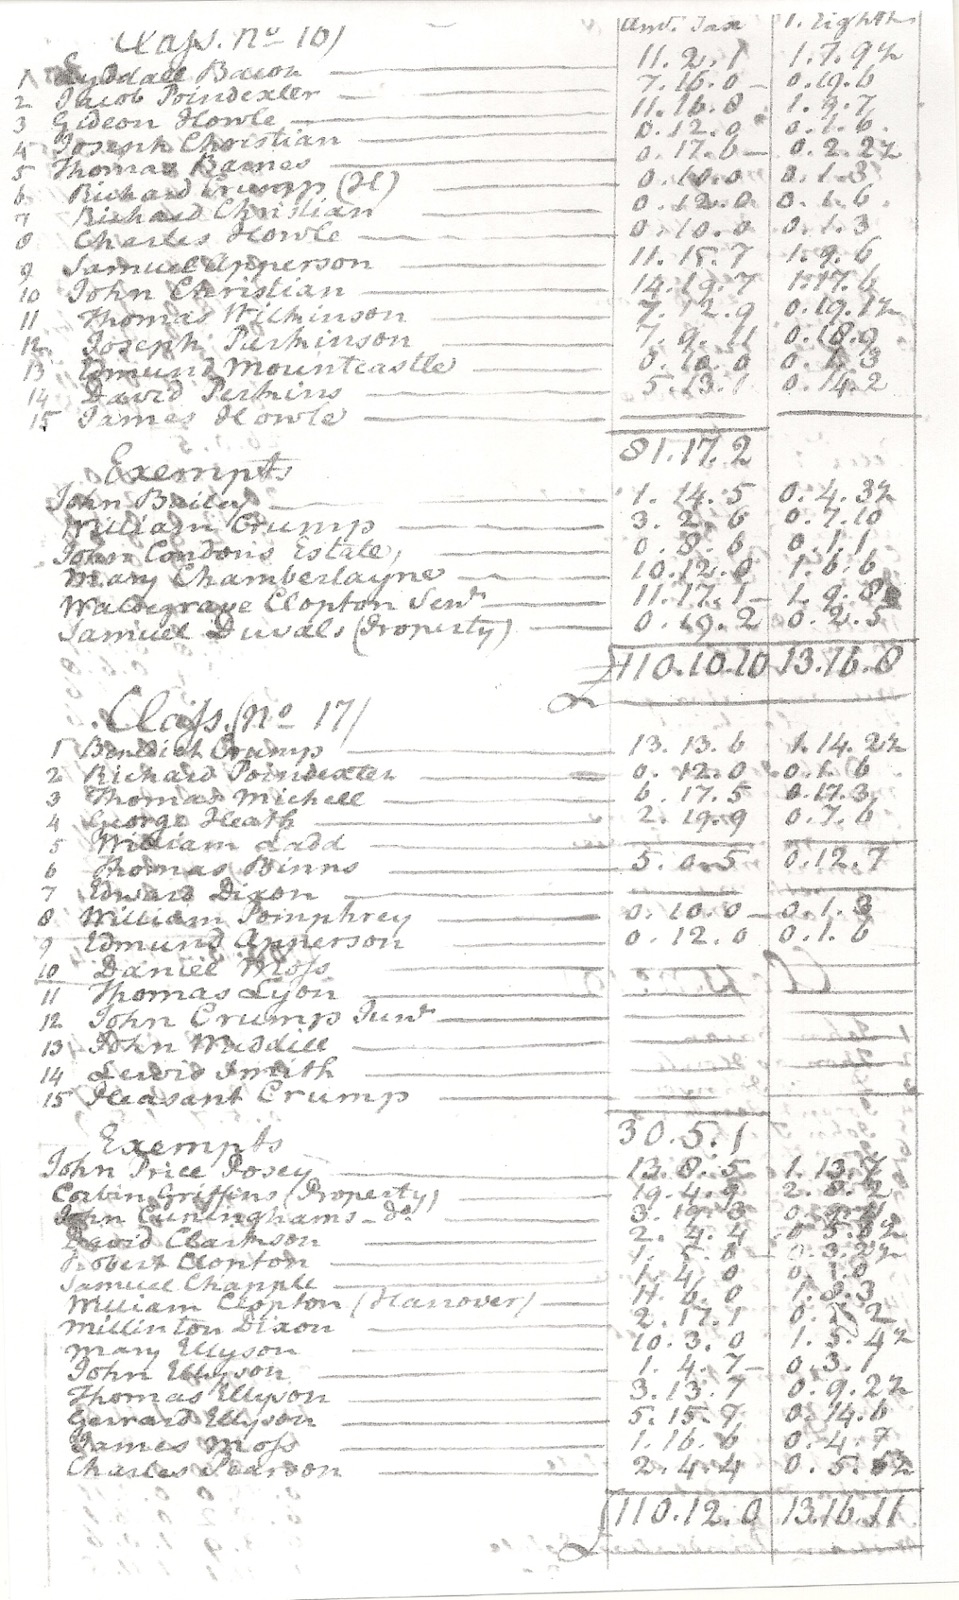 Class. No 16/ Amt. Tax 1. Eighth
1 Lyddall Bacon 11.2.1 1.7.9½
2 Jacob Poindexter 7.16.0 0.19.6
3 Gideon Howle 11.16.8 1.9.7
4 Joseph Christian 0.12.0 0.1.6
5 Thomas Barnes 0.17.6 0.2.2½
6 Richard Crump (H) 0.10.0 0.1.3
7 Richard Christian 0.12.0 0.1.6
8 Charles Howle 0.10.0 0.1.3
9 Samuel Apperson 11.15.7 1.9.6
10 John Christian 14.19.7 1.17.6
11 Thomas Wilkinson 7.12.9 0.19.1½
12 Joseph Parkinson 7.9.11 0.18.9
13 Edmund Mountcastle 0.10.0 0.1.3
14 David Perkins 5.13.1 0.14.2
15 James Howle
81.17.2
Exempts
John Bailey 1.14.5 0.4.3½
William Crump 3.2.6 0.7.10
John Condons Estate 0.8.6 0.1.1
Mary Chamberlayne 10.12.0 1.6.6
Waldegrave Clopton Senr 11.17.1 1.9.8
Samuel Duvals (Property) 0.19.2 0.2.5
£110.10.10 13.16.8
Class. No 17/
1 Benedict Crump 13.13.6 1.14.2½
2 Richard Poindexter 0.12.0 0.1.6
3 Thomas Michell 6.17.5 0.17.3
4 George Heath 2.19.9 0.7.6
5 William Ladd
6 Thomas Binns 5.0.5 0.12.7
7 Edward Dixon
8 William Pomphrey 0.10.0 0.1.3
9 Edmund Apperson 0.12.0 0.1.6
10 Daniel Moss
11 Thomas Lyon
12 John Crump Junr
13 John Muddill
14 Lewis Smith
15 Pleasant Crump
30.5.1
Exempts
John Price Posey 13.8.5 1.13.7
Corbin Griffins (Property) 19.4.9 2.8.2
John Cuninghams - do 3.19.3
David Clarkson 2.4.4
Robert Clopton 1.5.8 0.3.2½
Samuel Chapple 1.4.0
William Clopton (Hanover) 1.8.3
Millinton Dixon 2.17.1
Mary Ellyson 10.3.0 1.5.4½
John Ellyson 1.4.7 0.3.1
Thomas Ellyson 3.13.7 0.9.2½
Gerrard Ellyson 5.15.9 0.14.6
James Moss 1.16.6 0.4.7
Charles Pearson 2.4.4 0.5.6½
£110.12.0 13.16.11